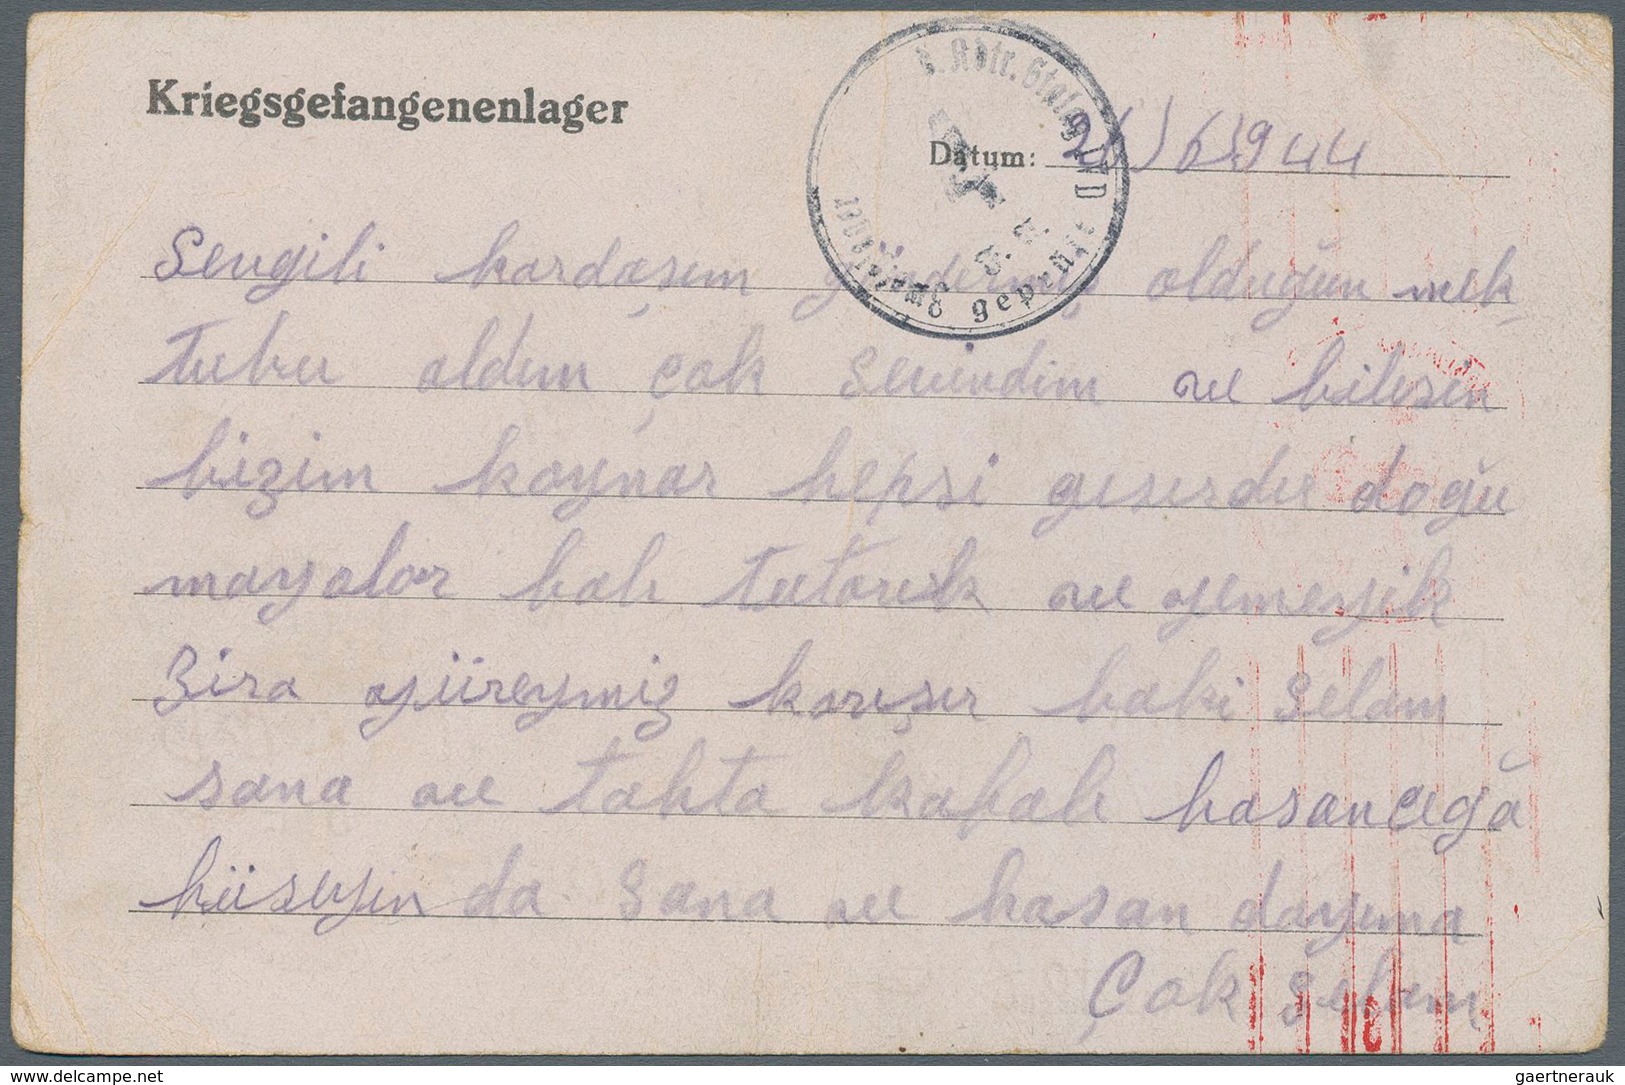 Kriegsgefangenenlager
Datum: 26/6/1944
Abtr. Stalag IV D
geprüft
Sevgili kardaşım göndermiş olduğun mek
tubu aldım çok sevindim ve bilesin
bizim koynar hepsi doğu
mayalar balı tutarık ve yemeyik
Zira yüreymiz karışır baki selam
sana ve tahta kafalı hasancığa
hüseyin da sana ve hasan dayıma
Çok selam
delcampe.net
gaertnerauk